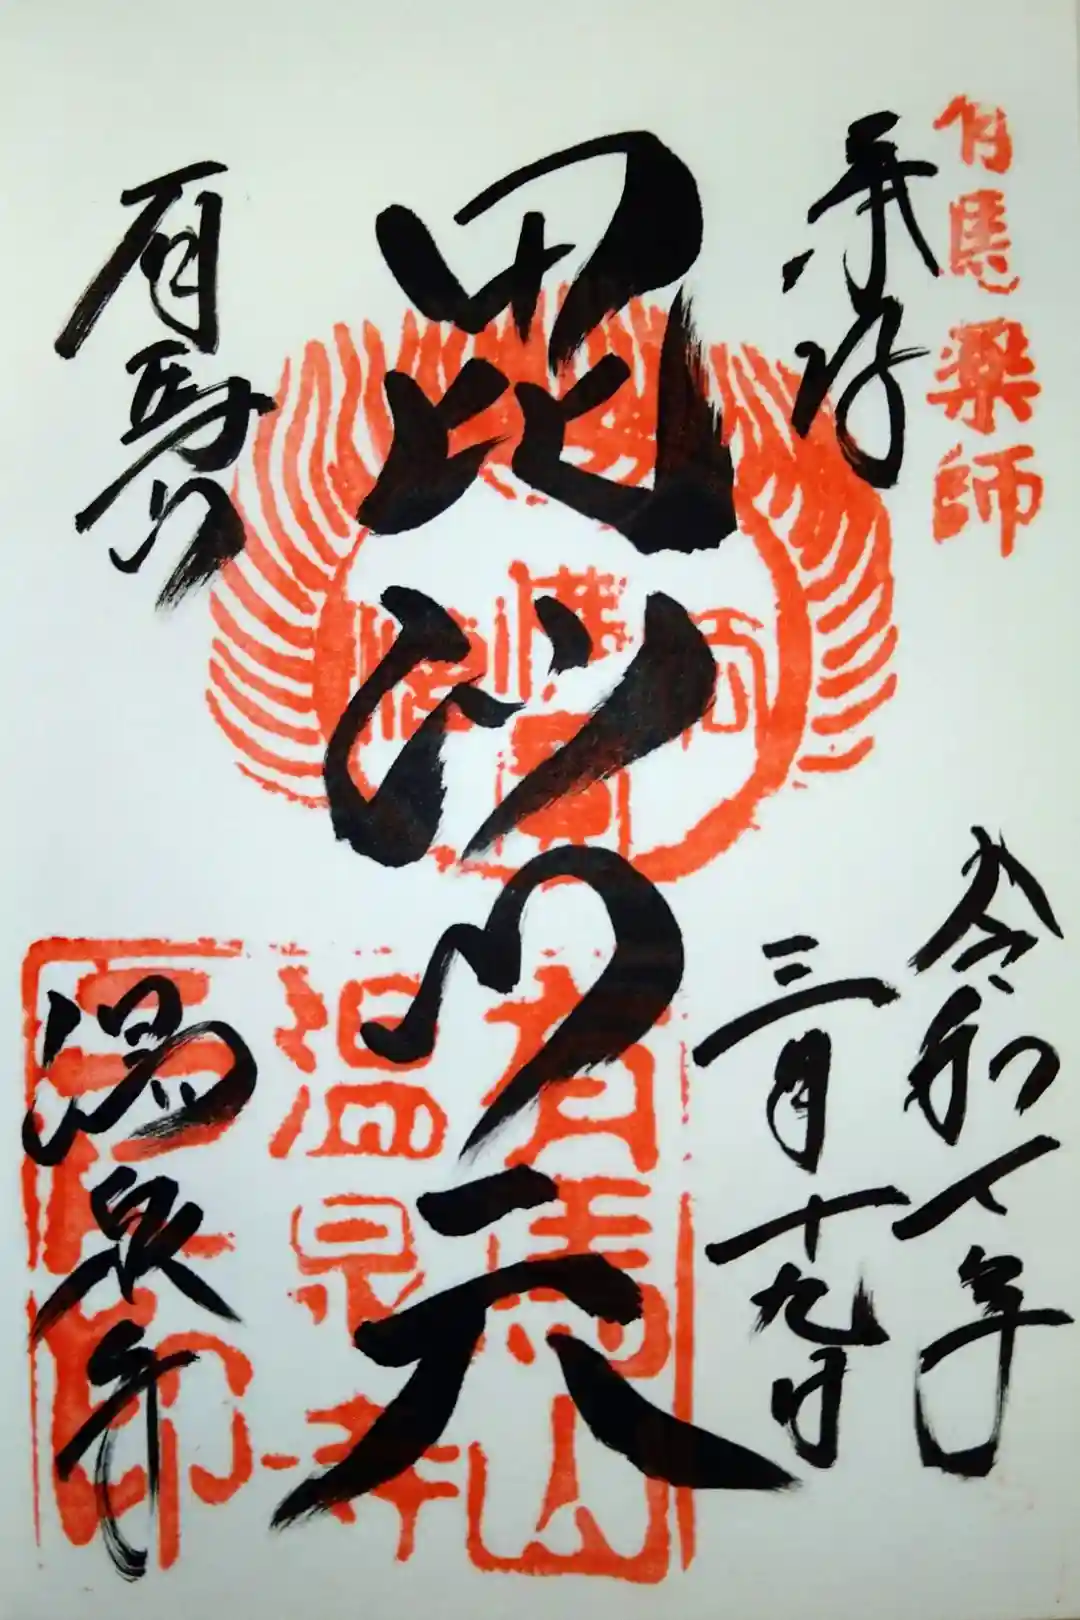 有馬薬師
奉拝
令和七年
三月十九日
毘沙門天
有馬山
温泉寺
有馬山
温泉寺